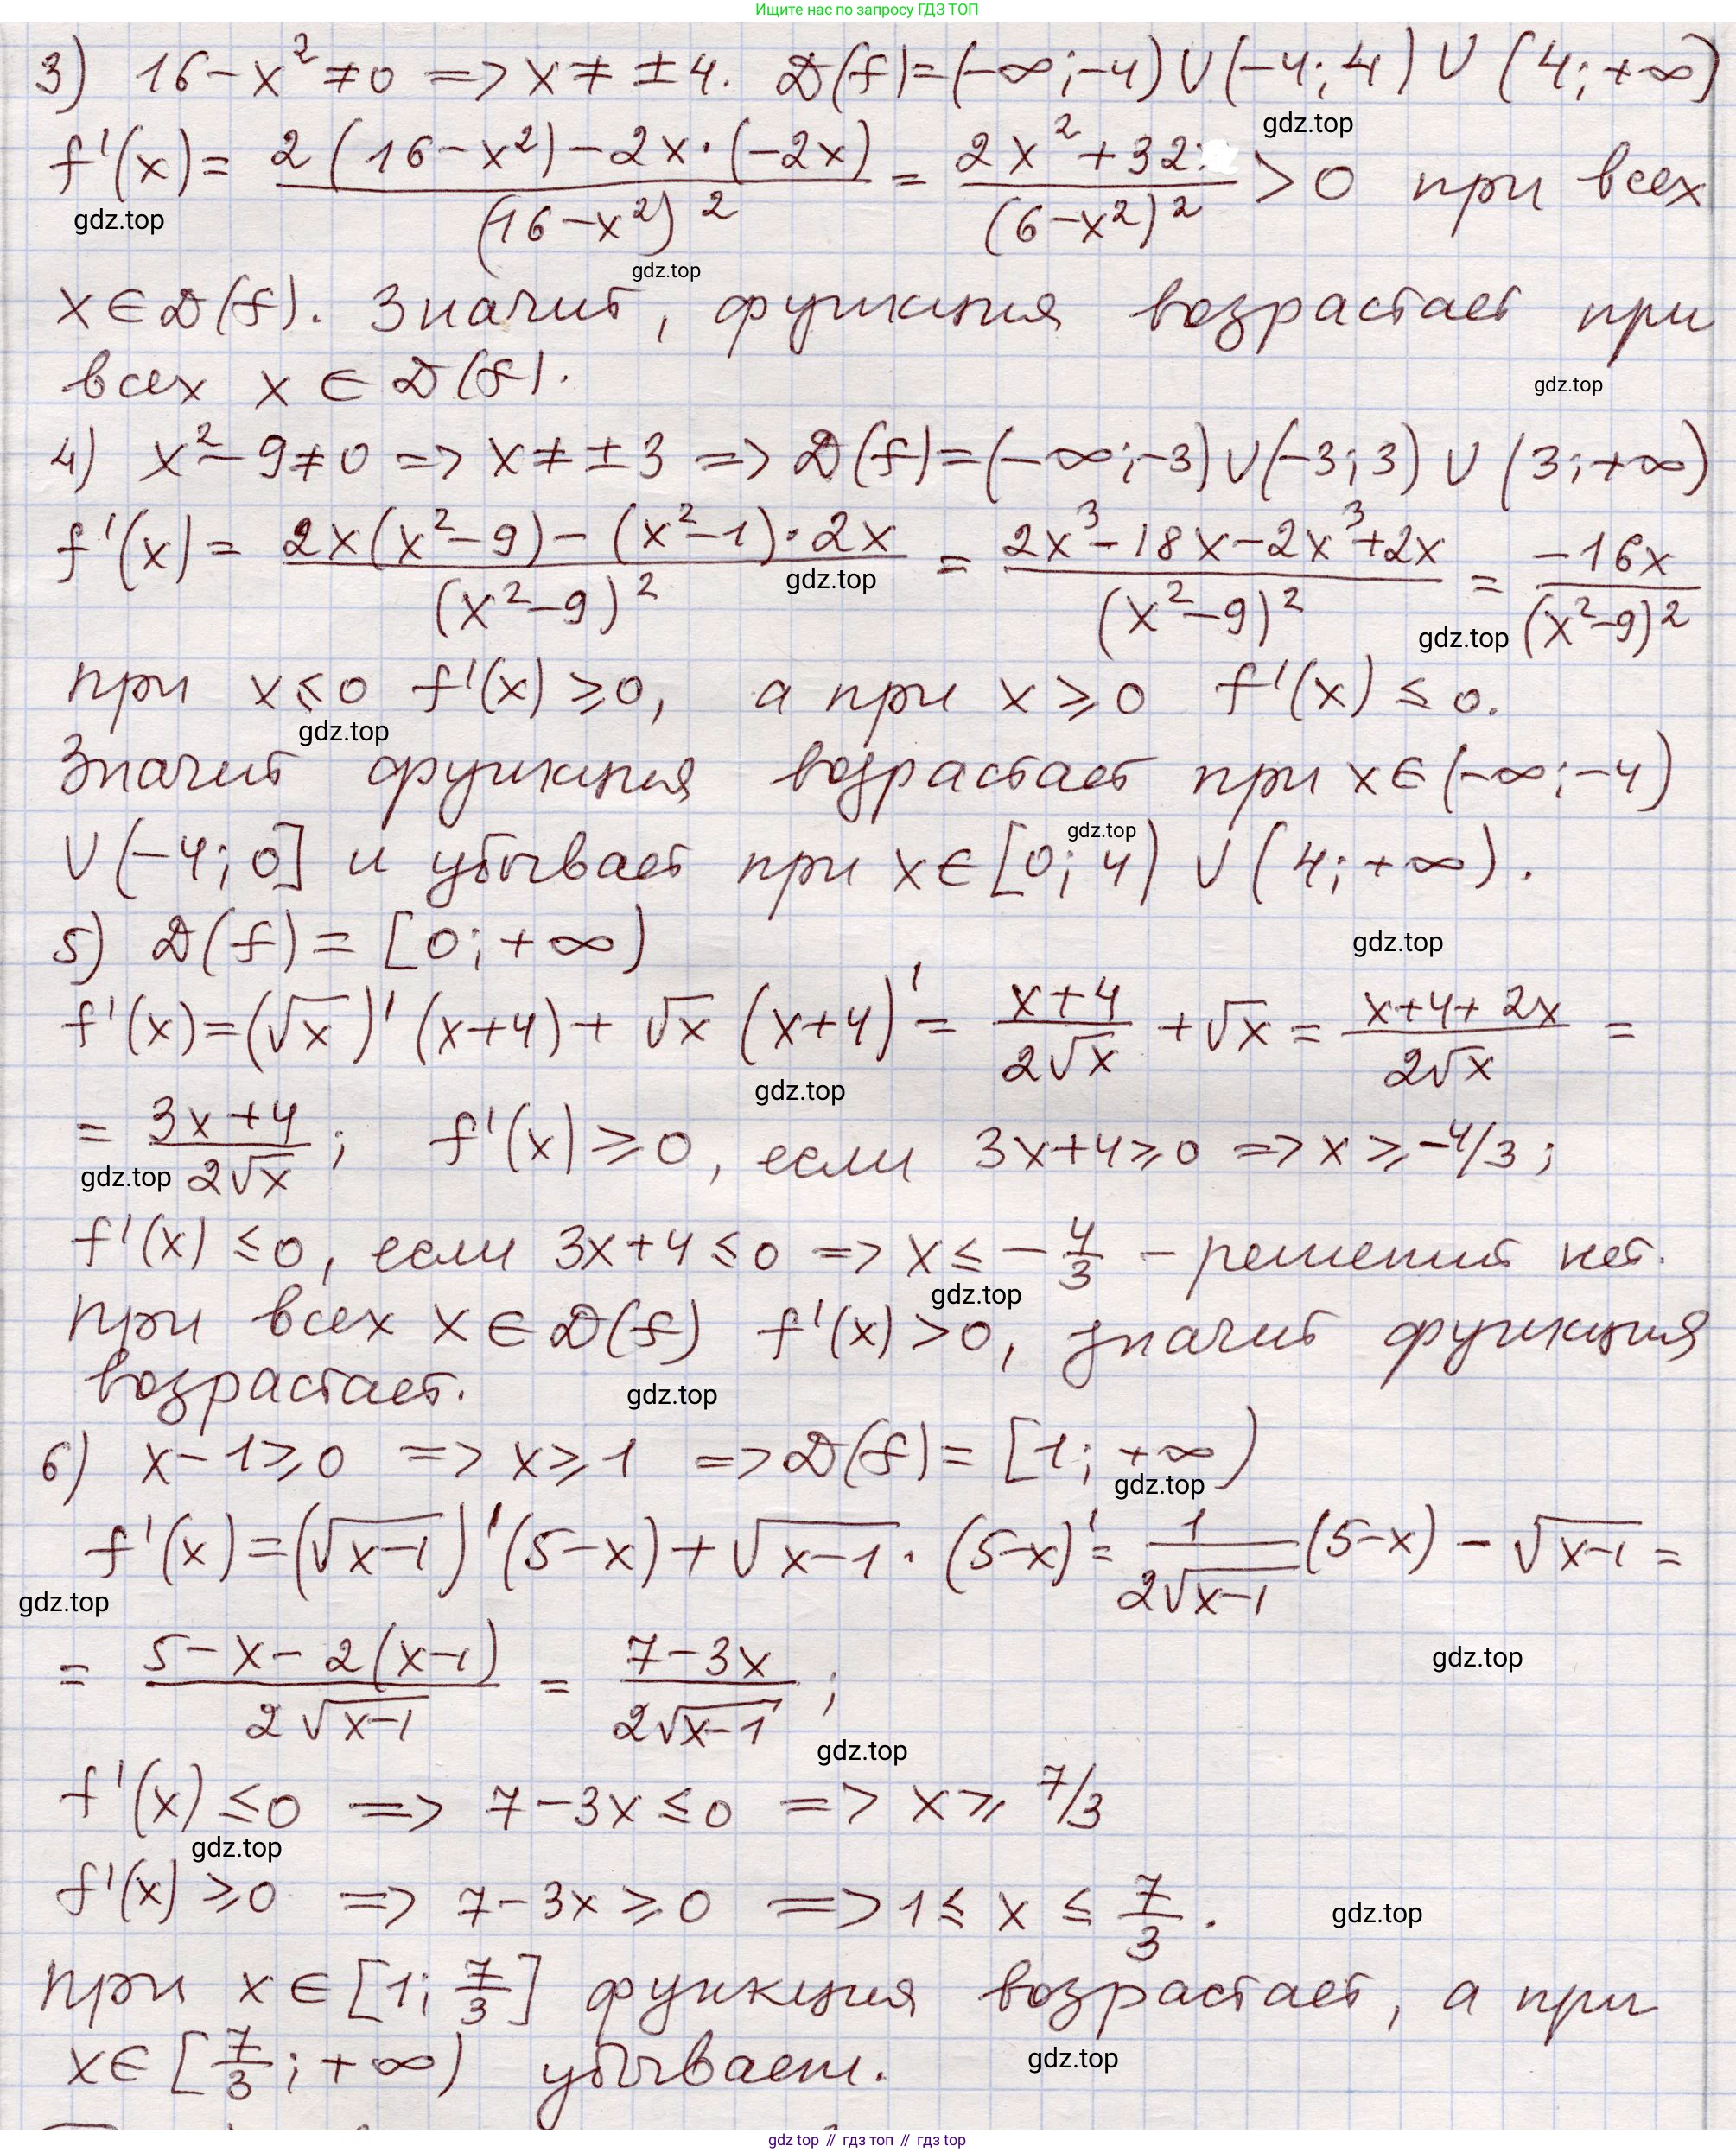 Ищите нас по запросу ГДЗ ТОП
3) 16-x²≠0 => x≠±4. D(f)=(-∞;-4)∪(-4;4)∪(4;+∞)
gdz.top
f'(x)= (2(16-x²)-2x·(-2x))/(16-x²)² = (2x²+32)/(6-x²)² >0 при всех
gdz.top
gdz.top
x∈D(f). Значит, функция возрастает при
всех x∈D(f).
gdz.top
4) x²-9≠0 => x≠±3 => D(f)=(-∞;-3)∪(-3;3)∪(3;+∞)
f'(x)= (2x(x²-9)-(x²-1)·2x)/(x²-9)² = (2x³-18x-2x³+2x)/(x²-9)² = (-16x)/(x²-9)²
gdz.top
gdz.top
при x≤0 f'(x)≥0, а при x≥0 f'(x)≤0.
gdz.top
Значит функция возрастает при x∈(-∞;-4)
gdz.top
∪(-4;0] и убывает при x∈[0;4)∪(4;+∞).
5) D(f)=[0;+∞)
gdz.top
f'(x)=(√x)'(x+4)+√x(x+4)'= (x+4)/(2√x) +√x= (x+4+2x)/(2√x) =
gdz.top
= (3x+4)/(2√x); f'(x)≥0, если 3x+4≥0 => x≥-4/3;
gdz.top
f'(x)≤0, если 3x+4≤0 => x≤-4/3 - решений нет.
gdz.top
При всех x∈D(f) f'(x)>0, значит функция
возрастает.
gdz.top
6) x-1≥0 => x≥1 => D(f)=[1;+∞)
gdz.top
f'(x)=(√(x-1))'(5-x)+√(x-1)·(5-x)'= 1/(2√(x-1)) (5-x)-√(x-1)=
gdz.top
= (5-x-2(x-1))/(2√(x-1)) = (7-3x)/(2√(x-1));
gdz.top
gdz.top
f'(x)≤0 => 7-3x≤0 => x≥7/3
gdz.top
f'(x)≥0 => 7-3x≥0 => 1≤x≤7/3.
gdz.top
При x∈[1;7/3] функция возрастает, а при
x∈[7/3;+∞) убывает.
gdz.top
gdz top // гдз топ // gdz.top